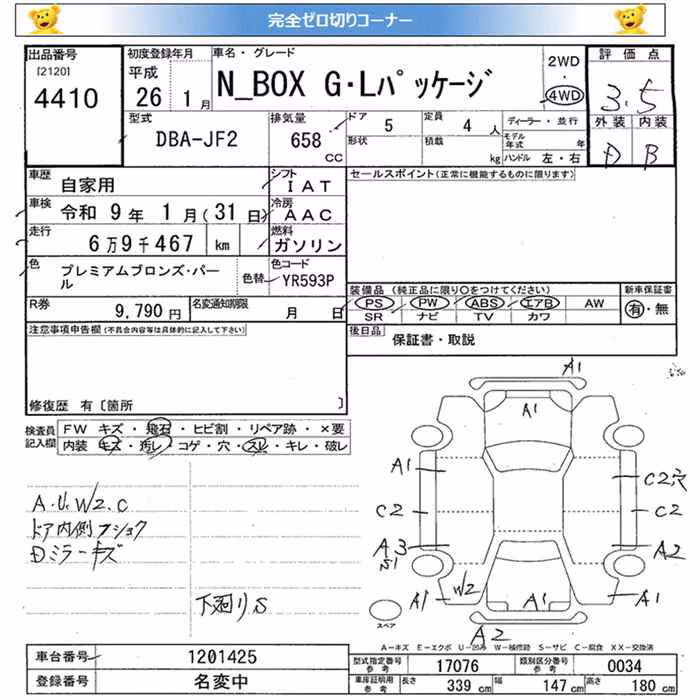 完全ゼロ切りコーナー
出品番号
[2120]
4410
初度登録年月
平成
26年 1月
車名・グレード
N_BOX G・Lパッケージ
2WD
・
4WD
評価点
3.5
外装 内装
D B
型式
DBA-JF2
排気量
658
CC
ドア 5
定員 4 人
ディーラー・並行
形状
積載 kg
モデル年式 年
ハンドル 左・右
車歴
自家用
シフト
IAT
セールスポイント(正常に機能するものに限ります)
車検
令和 9年 1月(31日)
冷房
AAC
走行
6万9千467 km
燃料
ガソリン
色
プレミアムブロンズ・パール
色替
色コード
YR593P
装備品 (純正品に限り○をつけてください)
新車保証書
PS PW ABS エアB AW
有・無
SR ナビ TV カワ
R券
9,790円
名変通知期限
月 日
後日品
保証書・取説
注意事項申告欄(不具合内容等は具体的に記入して下さい)
修復歴 有〔箇所 〕
検査員記入欄
FW キズ・飛石・ヒビ割・リペア跡・×要
内装 キズ・汚レ・コゲ・穴・スレ・キレ・破レ
A.U.W2.C
ドア内側フショク
Dミラーキズ
下廻りS
A1
A1
A1
C2穴
C2
C2
A3
S1
A2
A1
W2
A1
A1
A2
スペア
A－キズ E－エクボ U－凹み W－補修跡 S－サビ C－腐食 XX－交換済
車台番号
1201425
登録番号
名変中
型式指定番号
参考
17076
類別区分番号
参考
0034
車庫証明用
参考
長さ 339 cm
幅 147 cm
高さ 180 cm